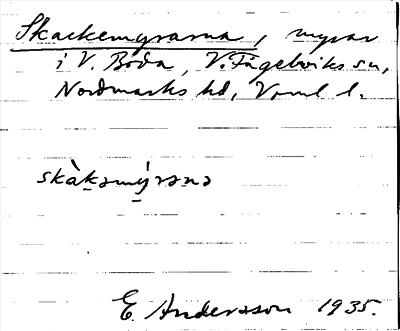 Skackemyrarna, myrar
i V. Boda, V. Fågelviks sn,
Nordmarks hd, Vrml l.
skàkəmýrəna
E. Andersson 1935.